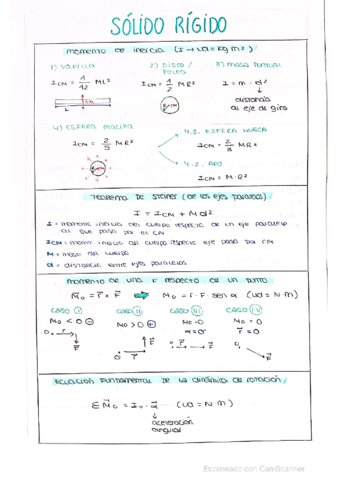 SÓLIDO RÍGIDO
momento de inercia (I → ud = kg m²)
1) VARILLA
2) DISCO / POLEA
3) masa puntual
I CM = 1/12 ML²
I CM = 1/2 MR²
I = m · d²
distancia al eje de giro
4) ESFERA MACIZA
4.1. ESFERA HUECA
I CM = 2/5 MR²
I CM = 2/3 MR²
4.2. ARO
I CM = M·R²
TEOREMA DE STEINER (DE LOS EJES PARALELOS)
I = I CM + Md²
I = momento inercia del cuerpo respecto de un eje paralelo
al que pasa por el CM
I CM = moment inercia del cuerpo respecte eje pasa por CM
M = masa del cuerpo
d = distancia entre ejes paralelos
momento de una F respecto de un punto
M⃗o = r⃗ × F⃗ ➡ Mo = r · F · sen α (ud = N·m)
CASO I
CASO II
CASO III
CASO IV
Mo < 0 ⊖
Mo > 0 ⊕
Mo = 0
Mo = 0
α = 0°
r⃗ = 0
ECUACIÓN FUNDAMENTAL DE LA DINÁMICA DE ROTACIÓN
Σ M⃗o = Io · α⃗ (ud = N·m)
aceleración
angular
Escaneado con CamScanner